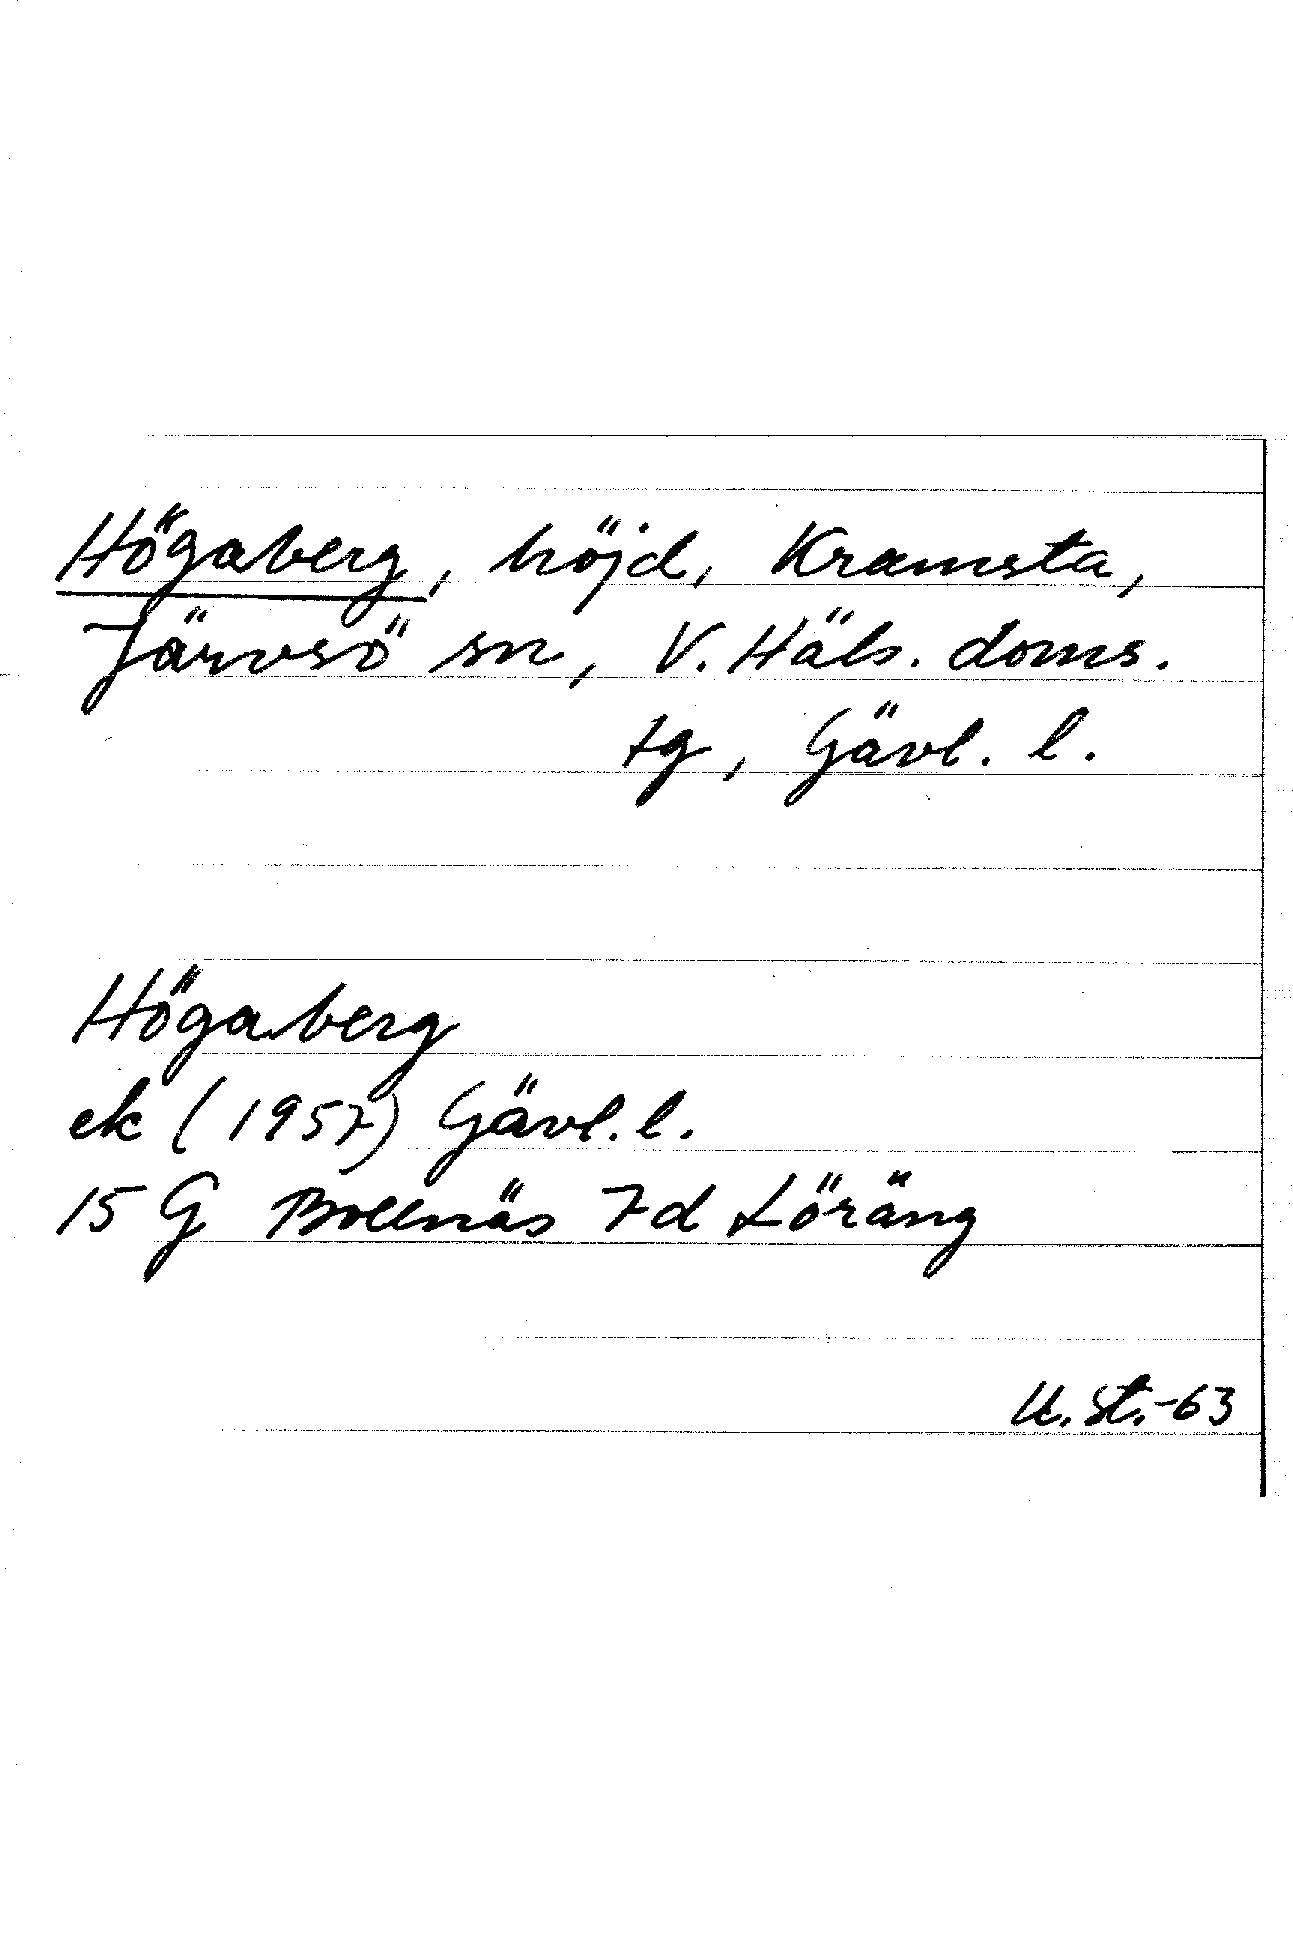 Högaberg, höjd, Kramsta,
Järvsö sn, V. Häls. doms.
tg, Gävl. l.
Högaberg
ek (1957) Gävl. l.
15 G Bollnäs 7d Löräng
U. St. -63